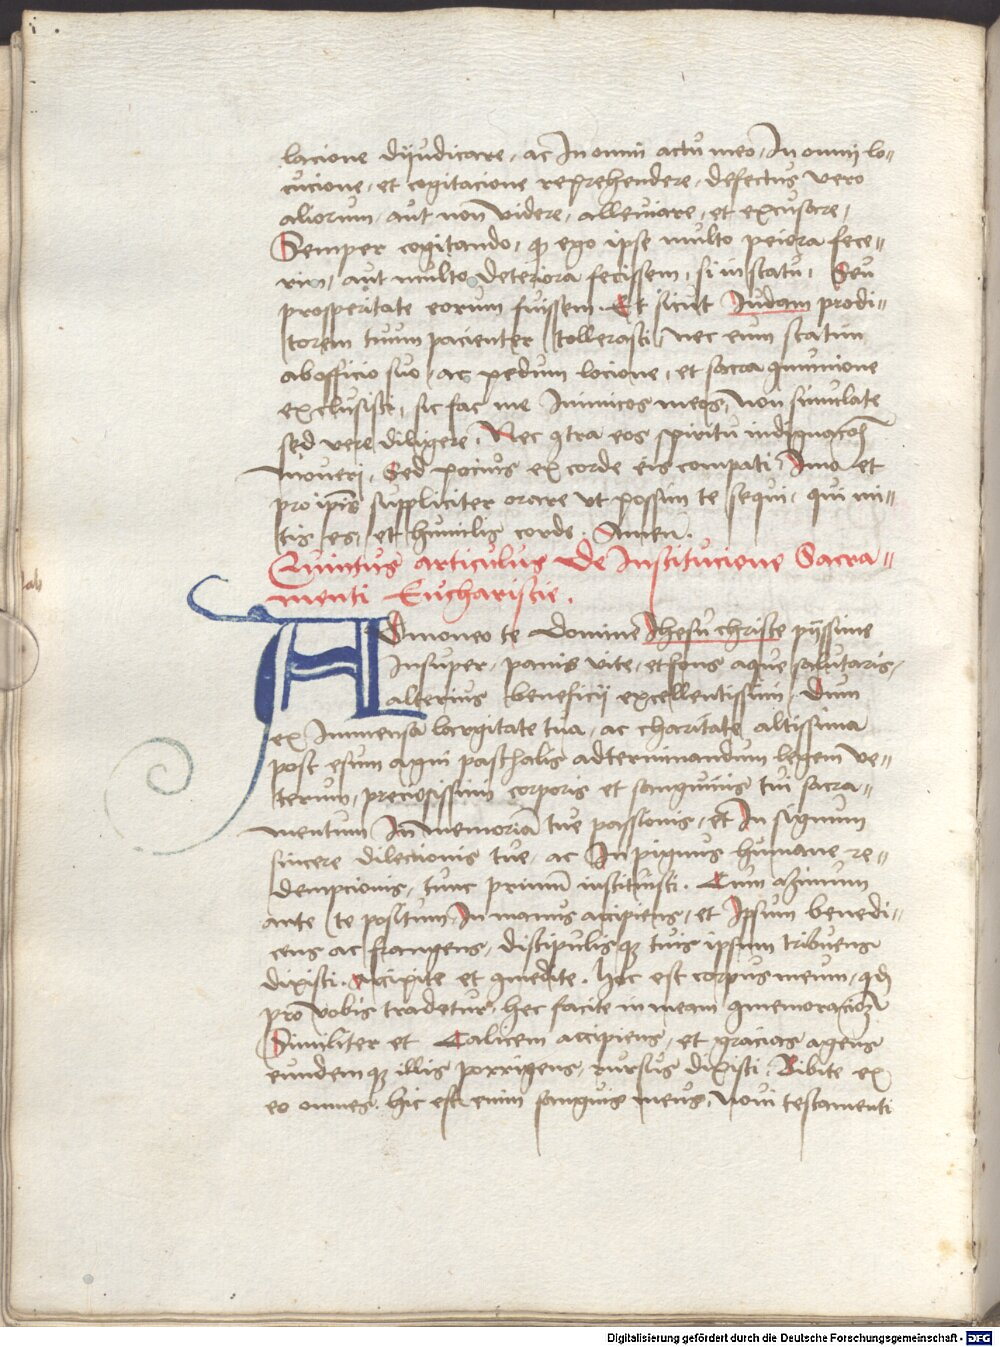 lacione dijudicare, ac In omni actu meo, In omnj lo-
cucione, et cogitacione reprehendere, defectus vero
aliorum, aut non videre, alleuiare, et excusare,
Semper cogitando, qꝫ ego ipse multo peiora fece-
rim, aut multo deteriora fecissem, si in statu, Seu
prosperitate eorum fuissem. Et sicut Iudam prodi-
torem tuum pacienter tollerasti, nec eum statim
ab officio suo, ac pedum locione, et sacra ꝯmunione
exclusisti, sic fac me Inimicos meos, non simulate
sed vere diligere, Nec ꝯtra eos spiritu indignacōis
moueri, Sed pocius ex corde eis compati, Imo et
pro ip̄is suppliciter orare vt possim te sequi, qui mi-
tis es, et humilis corde. Amen.
Quintus articulus De Institucione Sacra-
menti Eucharistie.
ADmoneo te Domine Ihesu christe pijssime
Insuper, panis vite, et fons aque salutaris,
alterius beneficij excellentissimi. Dum
ex Immensa largitate tua, ac charitate altissima
post esum agni paschalis ad terminandum legem ve-
terum, preciosissimi corporis et sanguinis tui sacra-
mentum In memoriā tue passionis, et In signum
sincere dilectionis tue, ac In pignus humane re-
dempcionis, tunc primū instituisti. Cum azimum
ante te positum, In manus accipiens, et Ipsum benedi-
cens ac frangens, discipulisqꝫ tuis ipsum tribuens
dixisti. Accipite et ꝯmedite. hoc est corpus meum, qd̄
pro vobis tradetur, hec facite in meam ꝯmemoracioꝫ
Similiter et Calicem accipiens, et gracias agens
eundemqꝫ illis porrigens, rursus dixisti. Bibite ex
eo omnes. hic est enim sanguis meus, noui testamenti
Digitalisierung gefördert durch die Deutsche Forschungsgemeinschaft - DFG